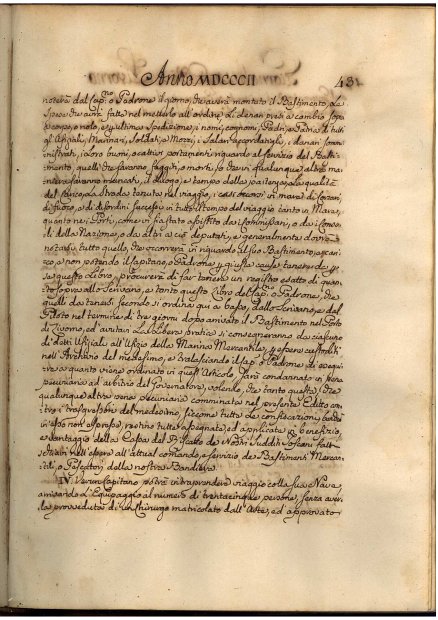 Anno MDCCCII 431
noterà dal Cap.no o Padrone il giorno, che averà montato il Bastimento, le
Spese che avrà fatte nel metterlo all'ordine, li denari presi a cambio sopra
corpo, o nolo, e sull'ultima Spedizione, i nomi, cognomi, Padri, e Patria di tutti
gl'Ufiziali, Marinari, Soldati, o Mozzi, i Salarj accordatigli, i danari somministrati
i loro buoni, o cattivi portamenti riguardo al servizio del Bastimento
quelli che saranno fuggiti, o morti, o che in qualunque altra maniera
saranno mancati, il tempo della partenza, la qualità
del carico, la Strada tenuta nel viaggio, i casi occorsi in mare
e disordini successi in tutto il tempo del viaggio tanto in Mare,
quanto nei Porti, come
della Nazione, o da altri a ciò deputati, e generalmente dovrà
notarsi tutto quello, che occorrerà in riguardo al suo Bastimento, o carico
e non potendo il Capitano, o Padrone per giuste cause tenere da per
se questo Libro, procurerà di far tenere un registro esatto di quanto
sopra allo Scrivano, e tanto questo Libro del Cap.no o Padrone, che
quelli da tenersi secondo si ordina qui a basso, dallo Scrivano, e dal
Piloto nel termine di tre giorni dopo arrivato il Bastimento nel Porto
di Livorno, ed avuta la Libera pratica si consegneranno da ciascuno
di detti Ufiziali all'Ufizio della Marina Mercantile, per essere custoditi
nell'Archivio del medesimo, e tralasciando il Cap.no o Padrone di eseguire
quanto viene ordinato in quest'Articolo, sarà condannato in pena
pecuniaria ad arbitrio del Governatore, volendo, che tanto questa, che
qualunque altra pena pecuniaria comminata nel presente Editto contro
i trasgressori del medesimo, siccome tutte le confiscazioni
in esso restino tutte assegnate, ed applicate in benefizio,
e vantaggio della Cassa del Riscatto de Nostri Sudditi Toscani fatti
schiavi nell'essere all'attual comando, e servizio de Bastimenti Mercantili
o Pescatori della nostra Bandiera.
IV. Verun Capitano potrà intraprendere viaggio colla sua Nave,
arrivando l'Equipaggio al numero di trentacinque persone, senza aver
la provveduta di un Chirurgo matricolato dall'Arte, ed approvato